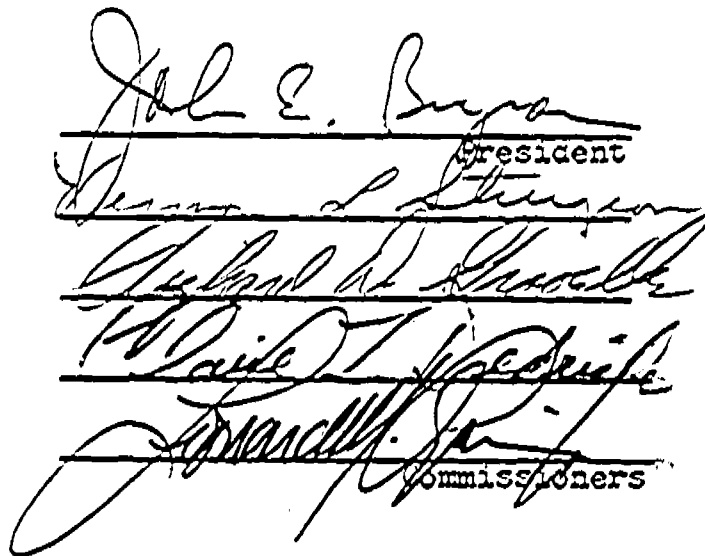 John E. Bryson
President
Vernon L Sturgeon
Richard D Gravelle
Claire T. Dedrick
Leonard M.
Commissioners